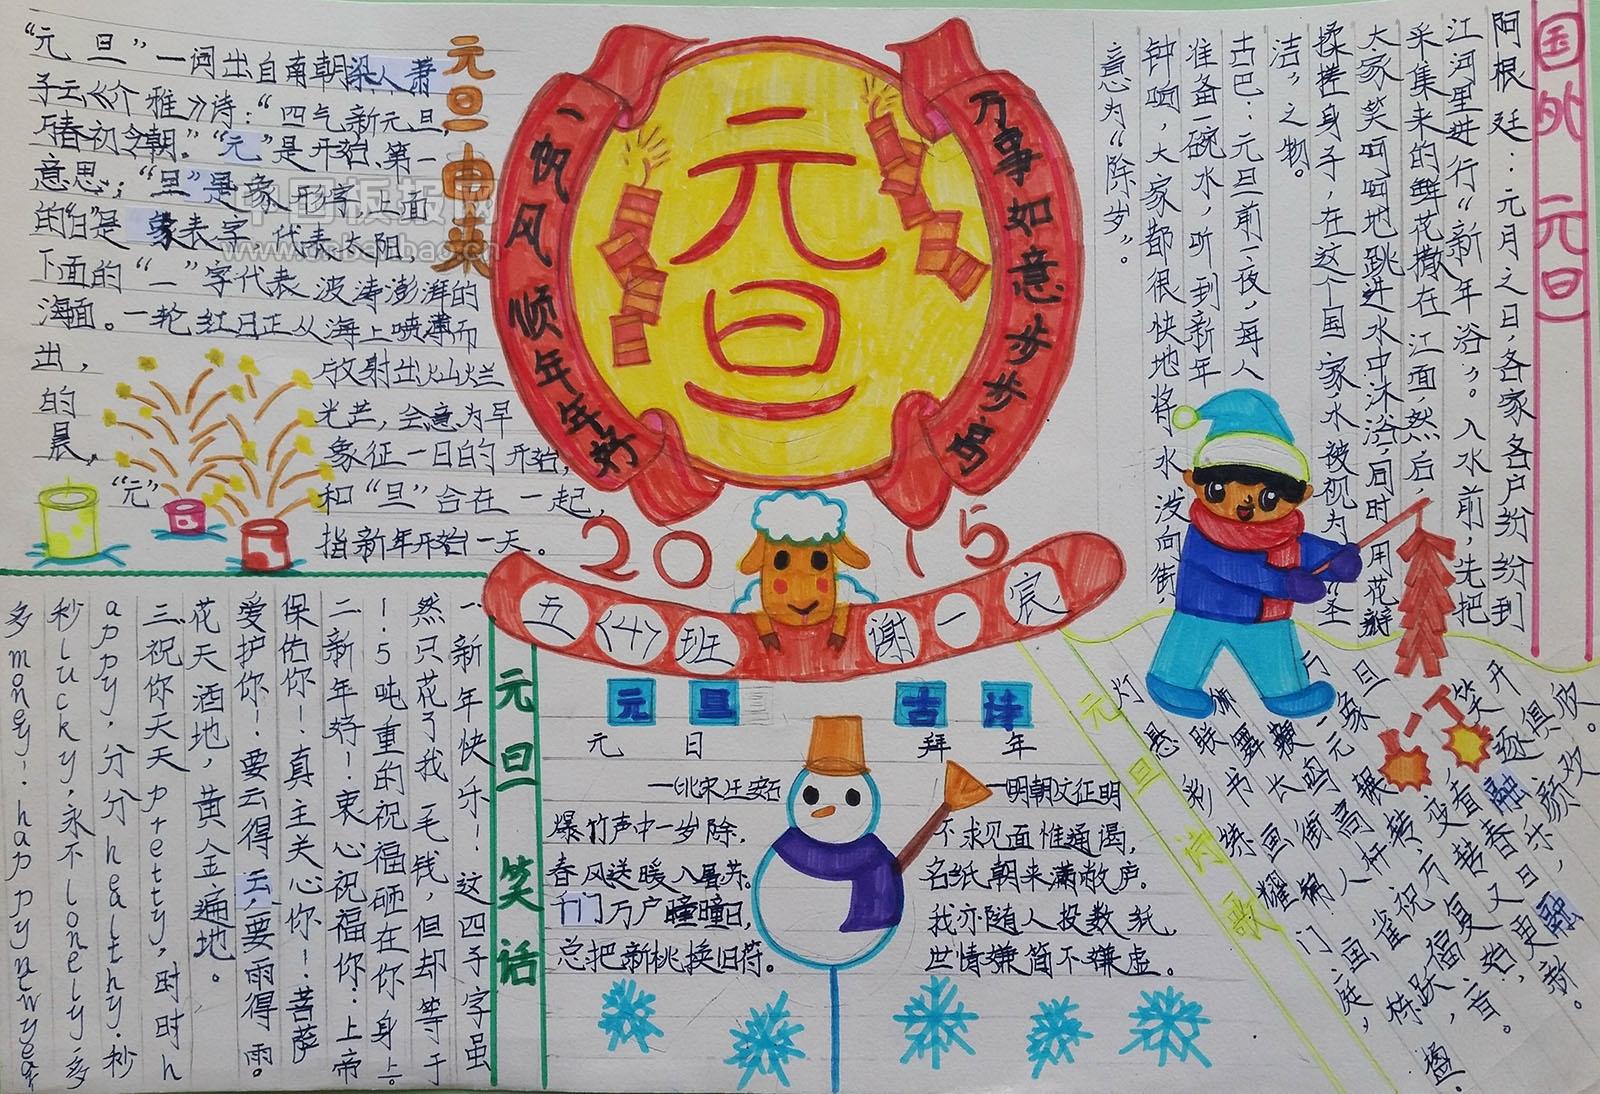 元旦由来
“元旦”一词出自南朝梁人萧
子云《介雅》诗：“四气新元旦，
万寿初今朝。”“元”是开始、第一
意思；“旦”是象形字，上面
的“日”是象表字，代表太阳，
下面的“一”字代表波涛澎湃的
海面。一轮红日正从海上喷薄而
出，放射出灿烂
的光芒，会意为早
晨，象征一日的开始，
“元”和“旦”合在一起，
指新年开始一天。
一帆风顺年年好
元旦
万事如意步步高
2015
五〈4〉班
谢一宸
国外元旦
阿根廷：元月之日，各家各户纷纷到
江河里进行“新年浴”。入水前，先把
采集来的鲜花撒在江面，然后，
大家笑呵呵地跳进水中沐浴，同时用花瓣
揉搓身子，在这个国家，水被视为“圣
洁”之物。
古巴：元旦前一夜，每人
准备一碗水，听到新年
钟响，大家都很快地将水泼向街
意为“除岁”。
元旦笑话
一、新年快乐！这四子字虽
然只花了我一毛钱，但却等于
1.5吨重的祝福砸在你身上。
二、新年好！衷心祝福你：上帝
保佑你！真主关心你！菩萨
爱护你！要云得云，要雨得雨。
花天酒地，黄金遍地。
三、祝你天天pretty，时时h
appy，分分healthy.秒
秒lucky，永不lonely，多
多money！happynewyear
元旦古诗
元日
—北宋王安石
爆竹声中一岁除，
春风送暖入屠苏。
千门万户曈曈日，
总把新桃换旧符。
拜年
—明朝文征明
不求见面惟通谒，
名纸朝来满敝庐。
我亦随人投数纸，
世情嫌简不嫌虚。
元旦诗歌
中国板报网
www.cnbanbao.cn